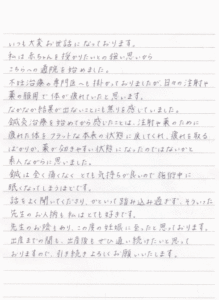 いつも大変お世話になっております。
私は赤ちゃんを授かりたいとの強い思いから
こちらへの通院を始めました。
不妊治療の専門医へも掛かっておりましたが、日々の注射や
薬の服用で体が疲れていたと思います。
なかなか結果が出ないことにも焦りを感じていました。
鍼灸治療を始めてから感じたことは、注射や薬のために
疲れた体をフラットな本来の状態に戻してくれ、疲れを取る
ばかりか、薬が効きやすい状態になったのではないかと
素人ながらに思いました。
鍼は全く痛くなく とても気持ちが良いので施術中に
眠くなってしまうほどです。
話をよく聞いてくださり、かといって踏み込み過ぎず、そういった
先生のお人柄も私はとても好きです。
先生のお陰もあり、この度の妊娠に至ったと思っております。
出産までの間も、出産後もぜひ通い続けたいと思って
おりますので、引き続きよろしくお願いいたします。